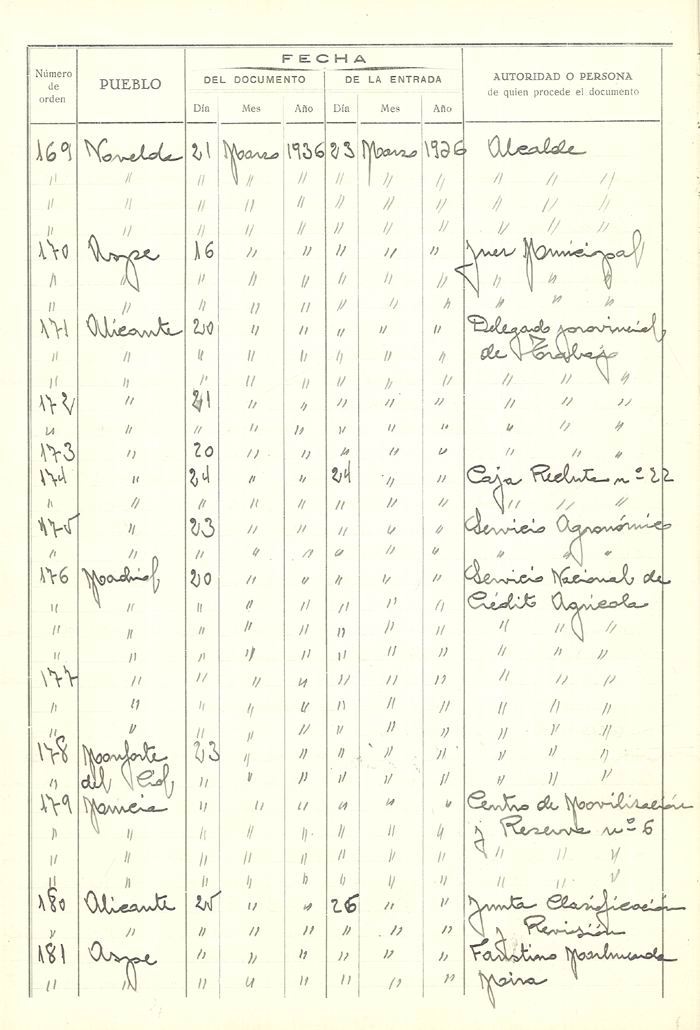 FECHA
Número de orden PUEBLO DEL DOCUMENTO DE LA ENTRADA AUTORIDAD O PERSONA
de quien procede el documento
Día Mes Año Día Mes Año
169 Novelda 21 Marzo 1936 23 Marzo 1936 Alcalde
" " " " " " " " " " "
" " " " " " " " " " "
" " " " " " " " " " "
170 Aspe 16 " " " " " Juez Municipal
" " " " " " " " " " "
" " " " " " " " " " "
171 Alicante 20 " " " " " Delegado provincial
" " " " " " " " de Trabajo
" " " " " " " " " " "
172 " 21 " " " " " " " "
" " " " " " " " " " "
173 " 20 " " " " " " " "
174 " 24 " " 24 " " Caja Recluta nº 22
" " " " " " " " " " "
175 " 23 " " " " " Servicio Agronómico
" " " " " " " " " " "
176 Madrid 20 " " " " " Servicio Nacional de
" " " " " " " " Crédito Agrícola
" " " " " " " " " " "
" " " " " " " " " " "
177 " " " " " " " " " "
" " " " " " " " " " "
" " " " " " " " " " "
178 Monforte 23 " " " " " " " "
" del Cid " " " " " " " " "
179 Murcia " " " " " " Centro de Movilización
" " " " " " " " y Reserva nº 6
" " " " " " " " " " "
" " " " " " " " " " "
180 Alicante 25 " " 26 " " Junta Clasificación
" " " " " " " " y Revisión
181 Aspe " " " " " " Faustino Marhuenda
" " " " " " " " Mira